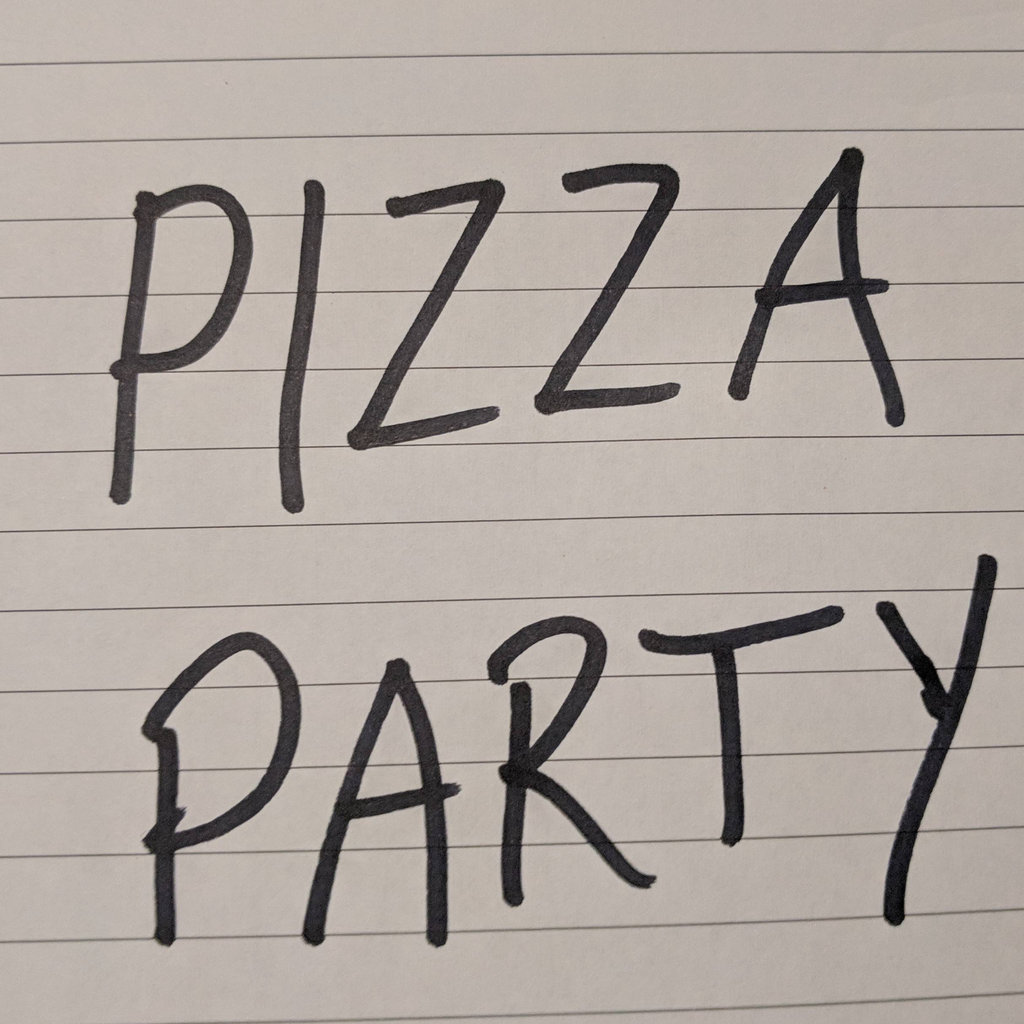 PIZZA
PARTY